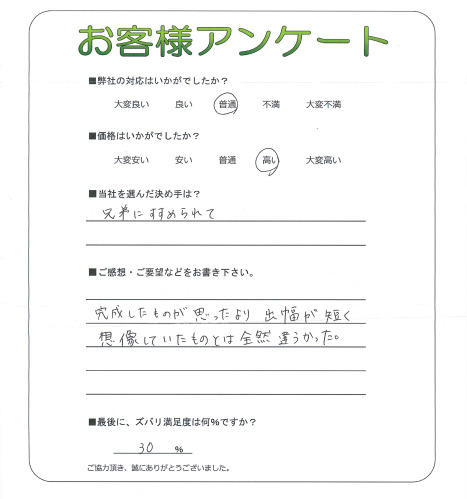 お客様アンケート
■弊社の対応はいかがでしたか？
大変良い 良い 普通 不満 大変不満
■価格はいかがでしたか？
大変安い 安い 普通 高い 大変高い
■当社を選んだ決め手は？
兄弟にすすめられて
■ご感想・ご要望などをお書き下さい。
完成したものが思ったより出幅が短く
想像していたものとは全然違うかった。
■最後に、ズバリ満足度は何%ですか？
30 %
ご協力頂き、誠にありがとうございました。